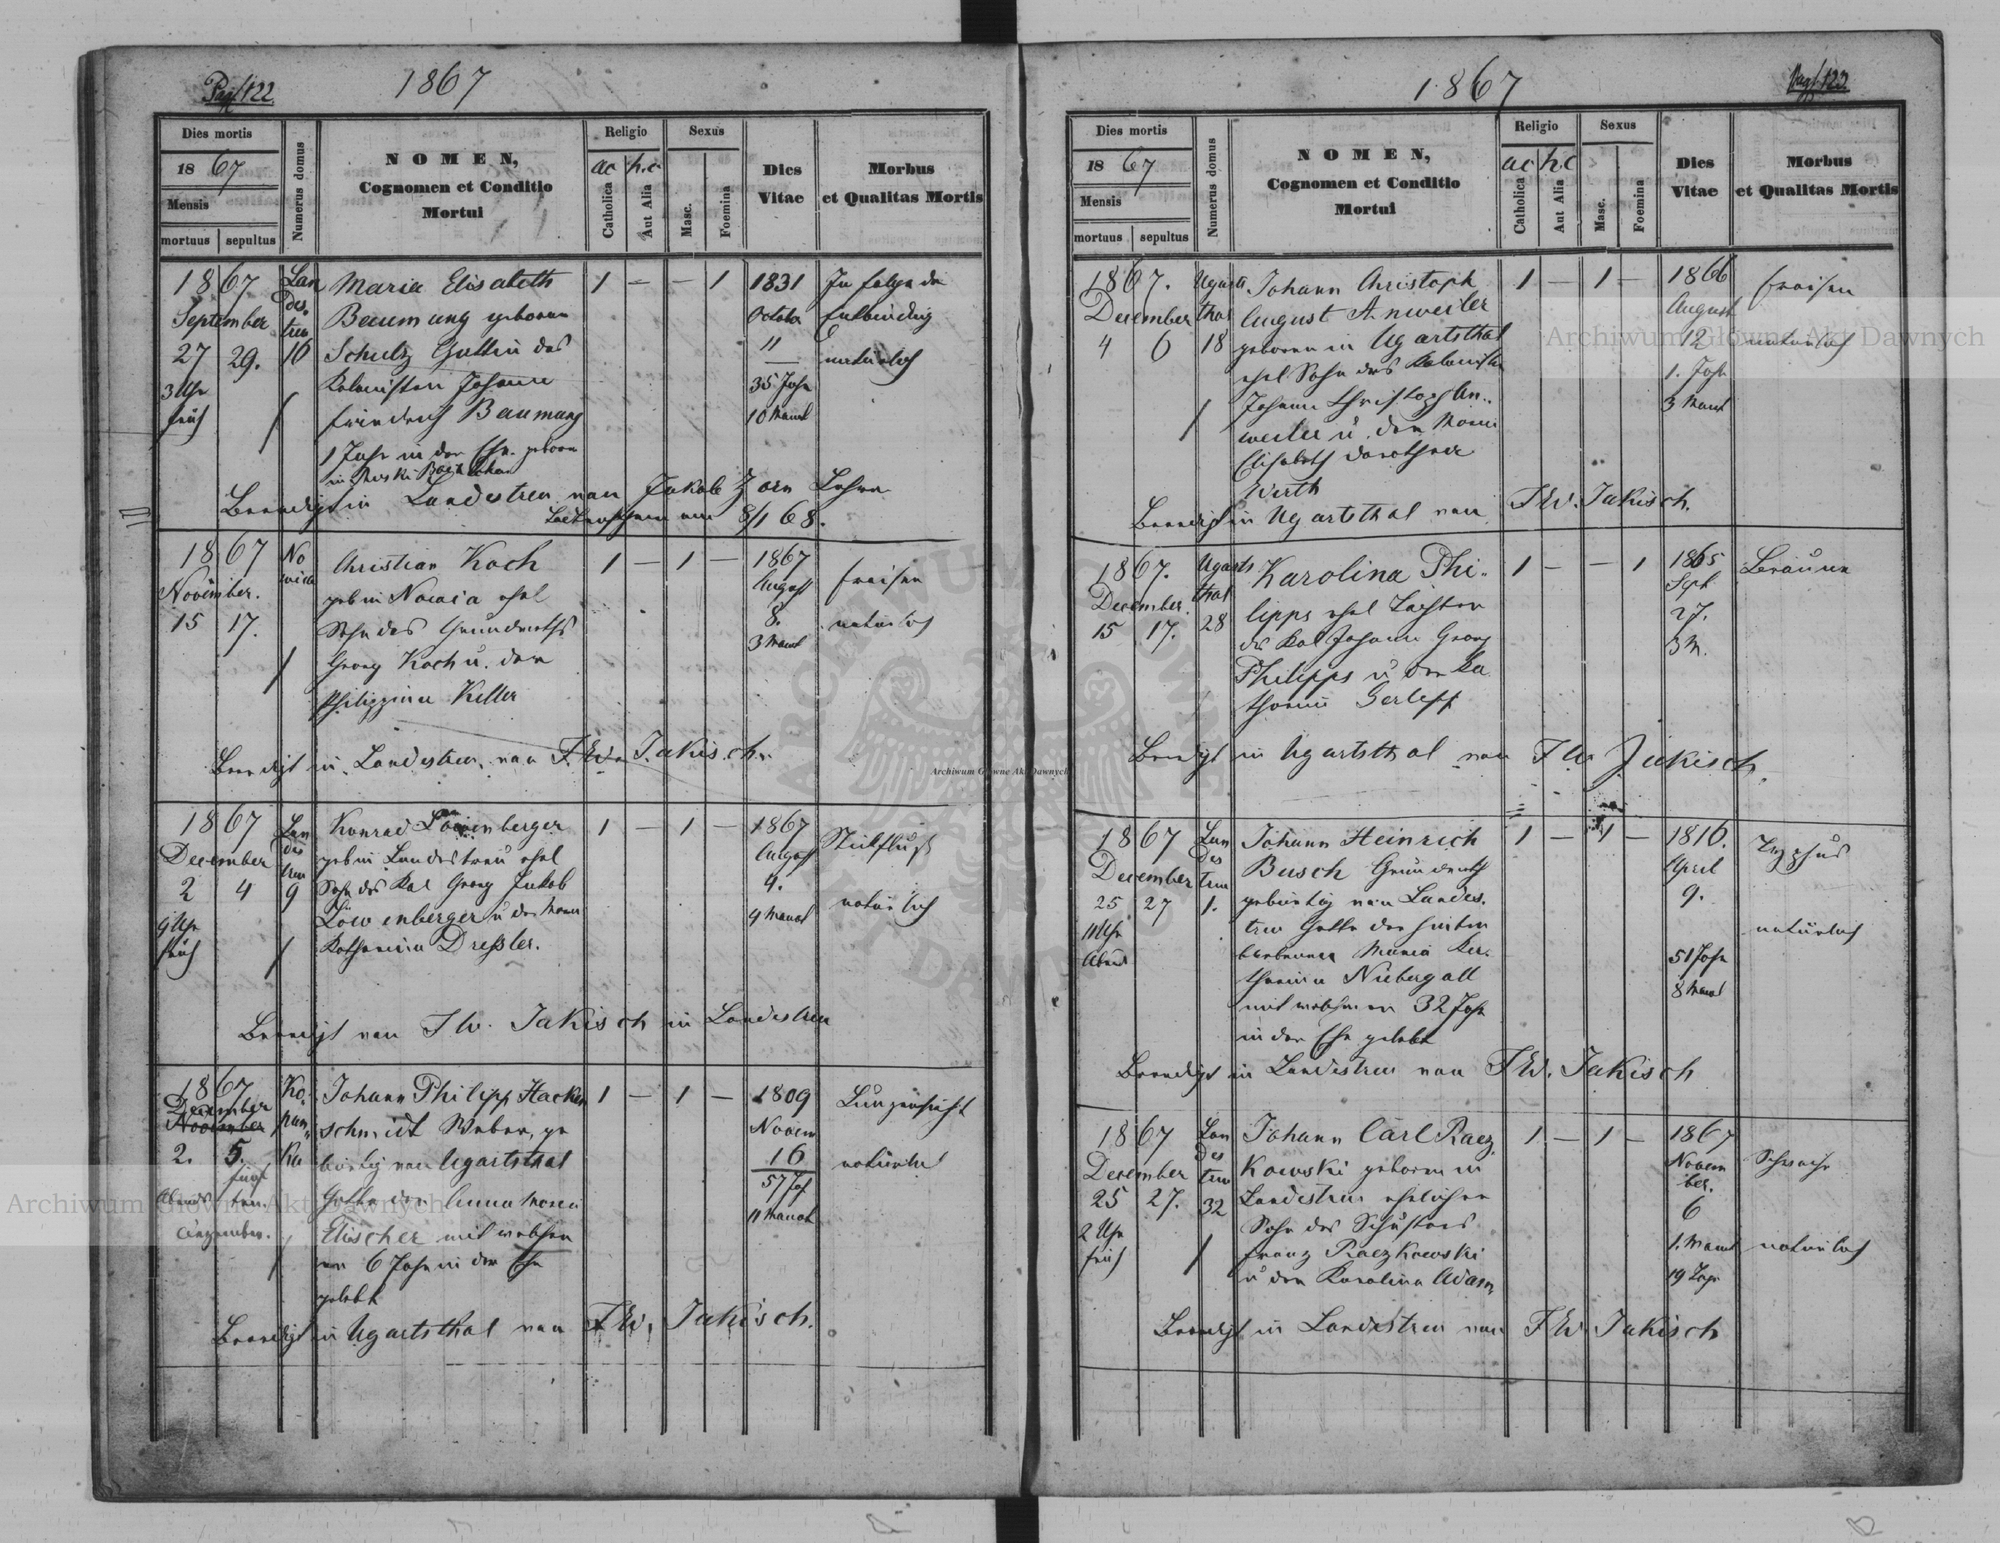 Pag. 122
1867
Dies mortis
1867
Mensis
mortuus
sepultus
Numerus domus
NOMEN,
Cognomen et Conditio
Mortui
Religio
ac
h.c
Catholica
Aut Alia
Sexus
Masc.
Foemina
Dies
Vitae
Morbus
et Qualitas Mortis
1867
September
27 29.
3 Uhr
früh
Lan
des
treu
16
Maria Elisabeth
Baumung geboren
Schulz Gattin des
Kolonisten Johann
Friedrich Baumung
1 Jahr in der Ehe. geboren
1 - - 1
1831
October
11
35 Jahr
10 Monat
In folge der
Entbindung
natürlich
Beerdigt in Landestreu von Jakob Zorn Lehrer
8/1 68.
1867
November.
15 17.
No
wica
Christian Koch
geb in Nowica ehel
Sohn des Grundwirths
Georg Koch u. der
Philippina Keller
1 - 1 -
1867
August
8.
3 Monat
Fraisen
natürlich
Beerdigt in Landestreu von F.W. Jakisch.
1867
December
2 4
9 Uhr
früh
Lan
des
treu
9
Konrad Löwenberger
geb in Landestreu ehel
Sohn des Kol Georg Jakob
Löwenberger u der Maria
Katharina Dreßler.
1 - 1 -
1867
August
4.
4 Monat
Stickfluß
natürlich
Beerdigt von F W. Jakisch in Landestreu
1867
December
November
2. 5.
Abends
fünf
ten.
Ko
pan
ka
Johann Philipp Hacken
schmidt Weber, ge
bürtig von Ugartsthal
Gatte der Anna Maria
Elischer mit welcher
er 6 Jahr in der Ehe
gelebt
1 - 1 -
1809
Novem
16
57 Jah
11 Monat
Lungensucht
natürlich
Beerdigt in Ugartsthal von F.W. Jakisch.
Pag. 123
1867
Dies mortis
1867
Mensis
mortuus
sepultus
Numerus domus
NOMEN,
Cognomen et Conditio
Mortui
Religio
ac
h.c
Catholica
Aut Alia
Sexus
Masc.
Foemina
Dies
Vitae
Morbus
et Qualitas Mortis
1867.
December
4 6
Ugarts
thal
18
Johann Christoph
August Anweiler
geboren in Ugartsthal
ehel Sohn des Kolonisten
Johann Christoph An-
weiler u. der Maria
Elisabeth Dorothea
Werth
1 - 1 -
1866
August
12
1. Jahr
3 Monat
Fraisen
natürlich
Beerdigt in Ugartsthal von F.W. Jakisch.
1867.
December.
15 17.
Ugarts
thal
28
Karolina Phi-
lipps ehel Tochter
des Kol Johann Georg
Philipps u der Ka
tharina Gerlipp
1 - - 1
1865
Sept
27.
3 M.
Bräune
Beerdigt in Ugartsthal von F W Jakisch.
1867
December
25 27
11 Uhr
Abend
Lan
des
treu
1.
Johann Heinrich
Busch Grundwirth
gebürtig von Landes-
treu Gatte der hinter
bliebenen Maria Ka-
tharina Niebergall
mit welcher er 32 Jahr
in der Ehe gelebt
1 - 1 -
1816.
April
9.
51 Jahr
8 Monat
Typhus
natürlich
Beerdigt in Landestreu von F.W. Jakisch
1867
December
25 27.
2 Uhr
früh
Lan
des
treu
32
Johann Carl Racz
Kowski geboren in
Landestreu ehelicher
Sohn des Schusters
Franz Raczkowski
u der Karolina Adam.
1 - 1 -
1867
Novem
ber.
6
1. Monat
19 Tage
Schwäche
natürlich
Beerdigt in Landestreu von F.W. Jakisch
Archiwum Główne Akt Dawnych
Archiwum Główne Akt Dawnych
Archiwum Główne Akt Dawnych